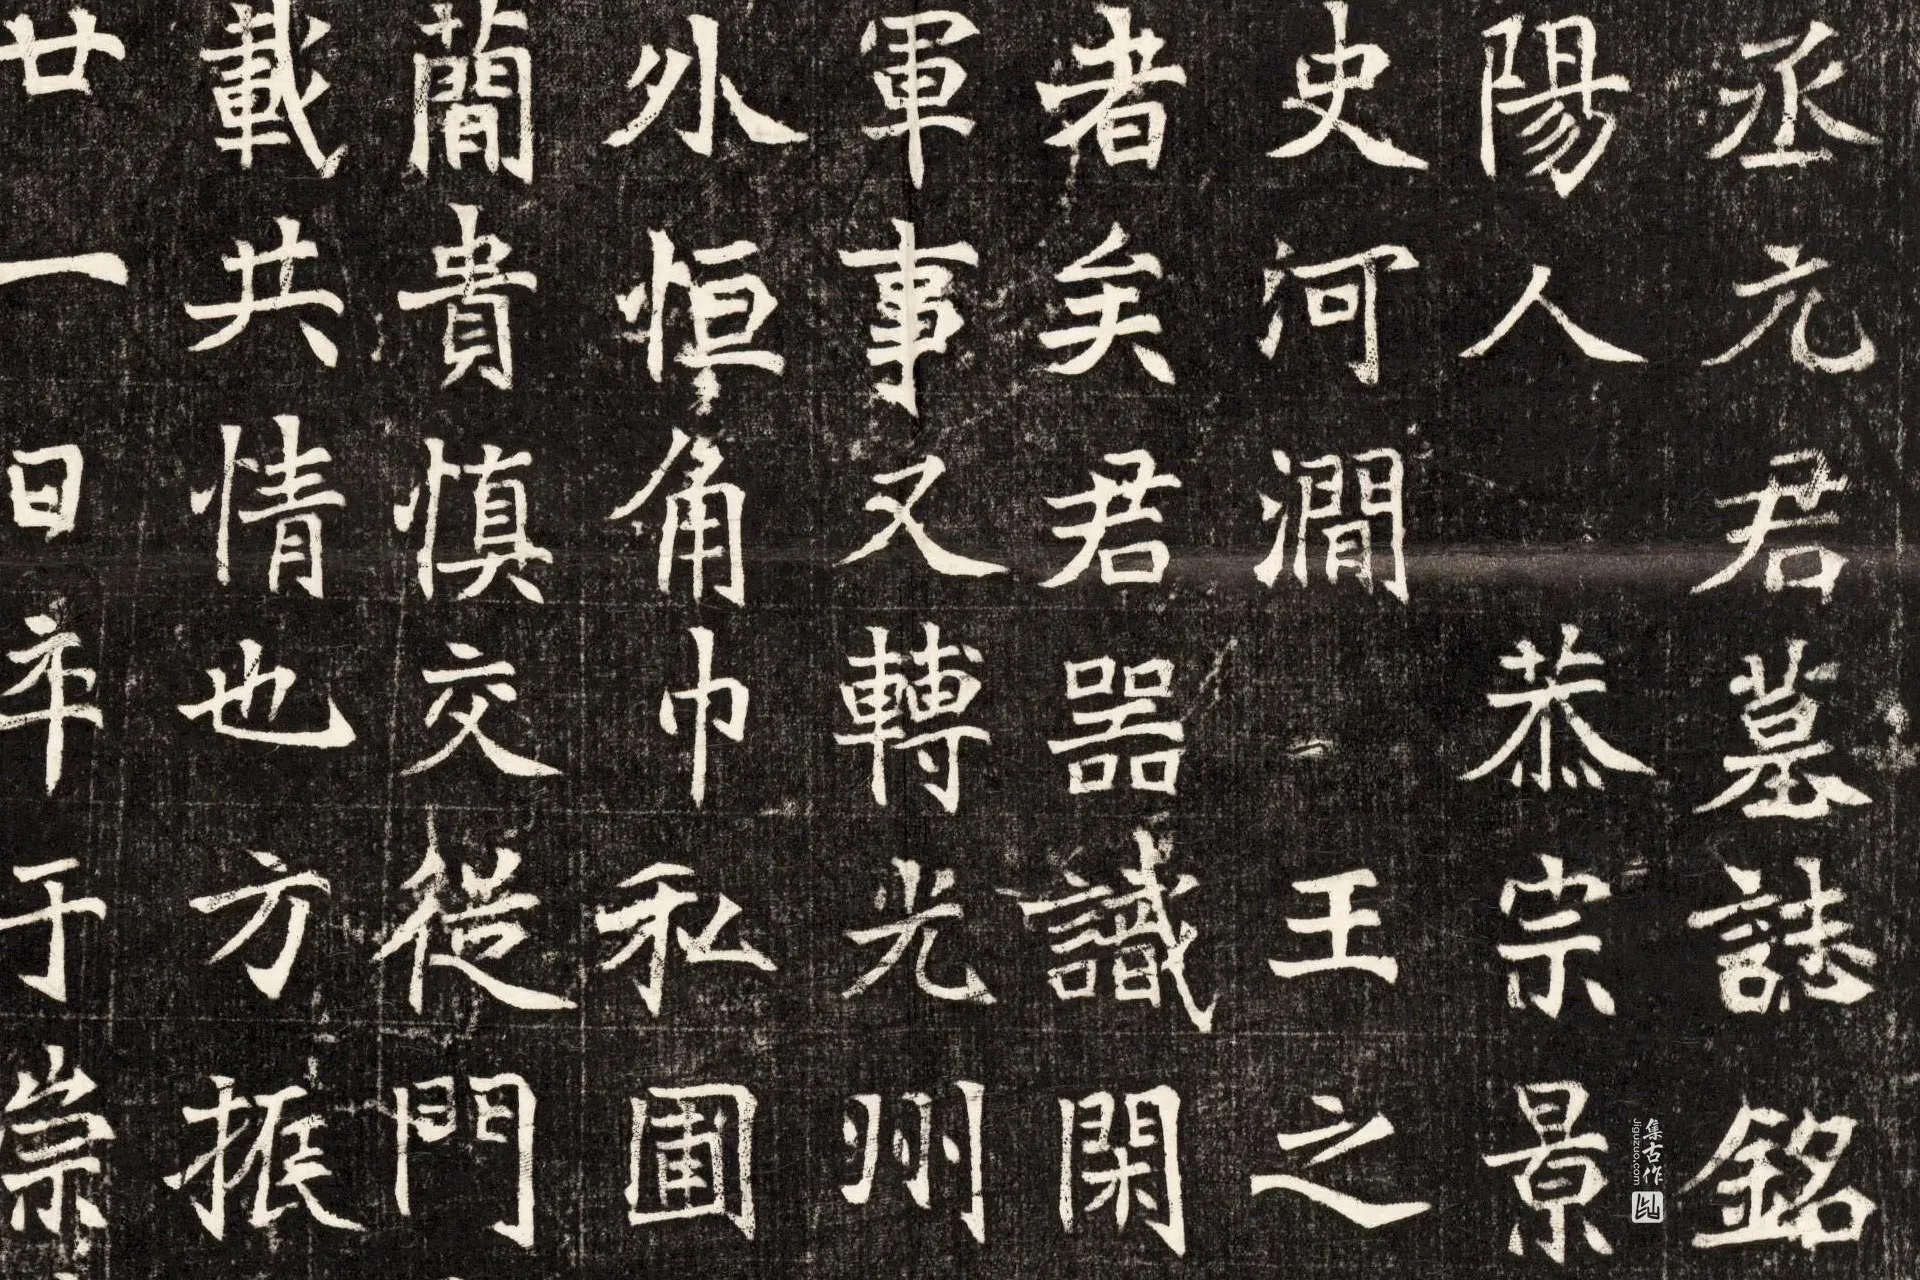 丞元君墓誌銘
陽人 恭宗景
史河澗 王之
者矣君器識閑
軍事又轉光州
外恒角巾私圃
蕳貴慎交從門
載共情也方振
廿一日卒于崇
集古作
Jiguzuo.com